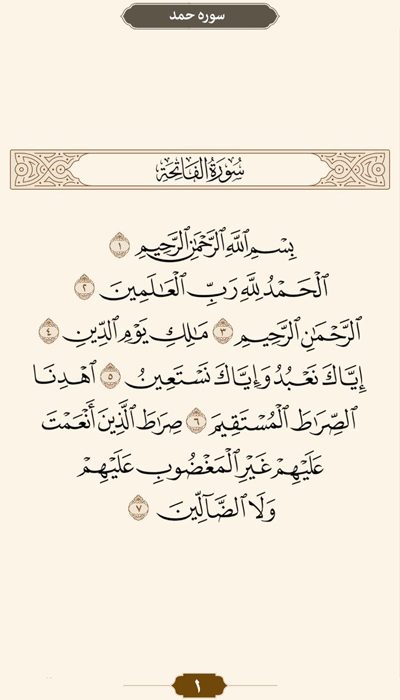 سوره حمد
سُورَةُ الفَاتِحَة
بِسْمِ اللَّهِ الرَّحْمَٰنِ الرَّحِيمِ ١
الْحَمْدُ لِلَّهِ رَبِّ الْعَالَمِينَ ٢
الرَّحْمَٰنِ الرَّحِيمِ ٣ مَالِكِ يَوْمِ الدِّينِ ٤
إِيَّاكَ نَعْبُدُ وَإِيَّاكَ نَسْتَعِينُ ٥ اهْدِنَا
الصِّرَاطَ الْمُسْتَقِيمَ ٦ صِرَاطَ الَّذِينَ أَنْعَمْتَ
عَلَيْهِمْ غَيْرِ الْمَغْضُوبِ عَلَيْهِمْ
وَلَا الضَّالِّينَ ٧
١